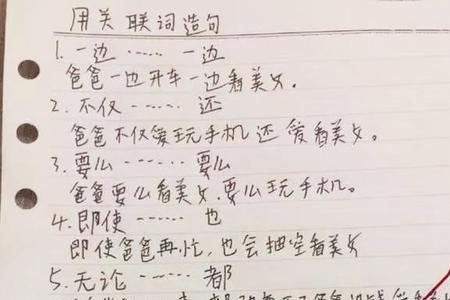 用关联词造句
1. 一边 ······ 一边
爸爸一边开车一边看美女。
2. 不仅 ······ 还
爸爸不仅爱玩手机还爱看美女。
3. 要么 ······ 要么
爸爸要么看美女,要么玩手机。
4. 即使 ······ 也
即使爸爸再忙,也会抽空看美女
5. 无论 ······ 都